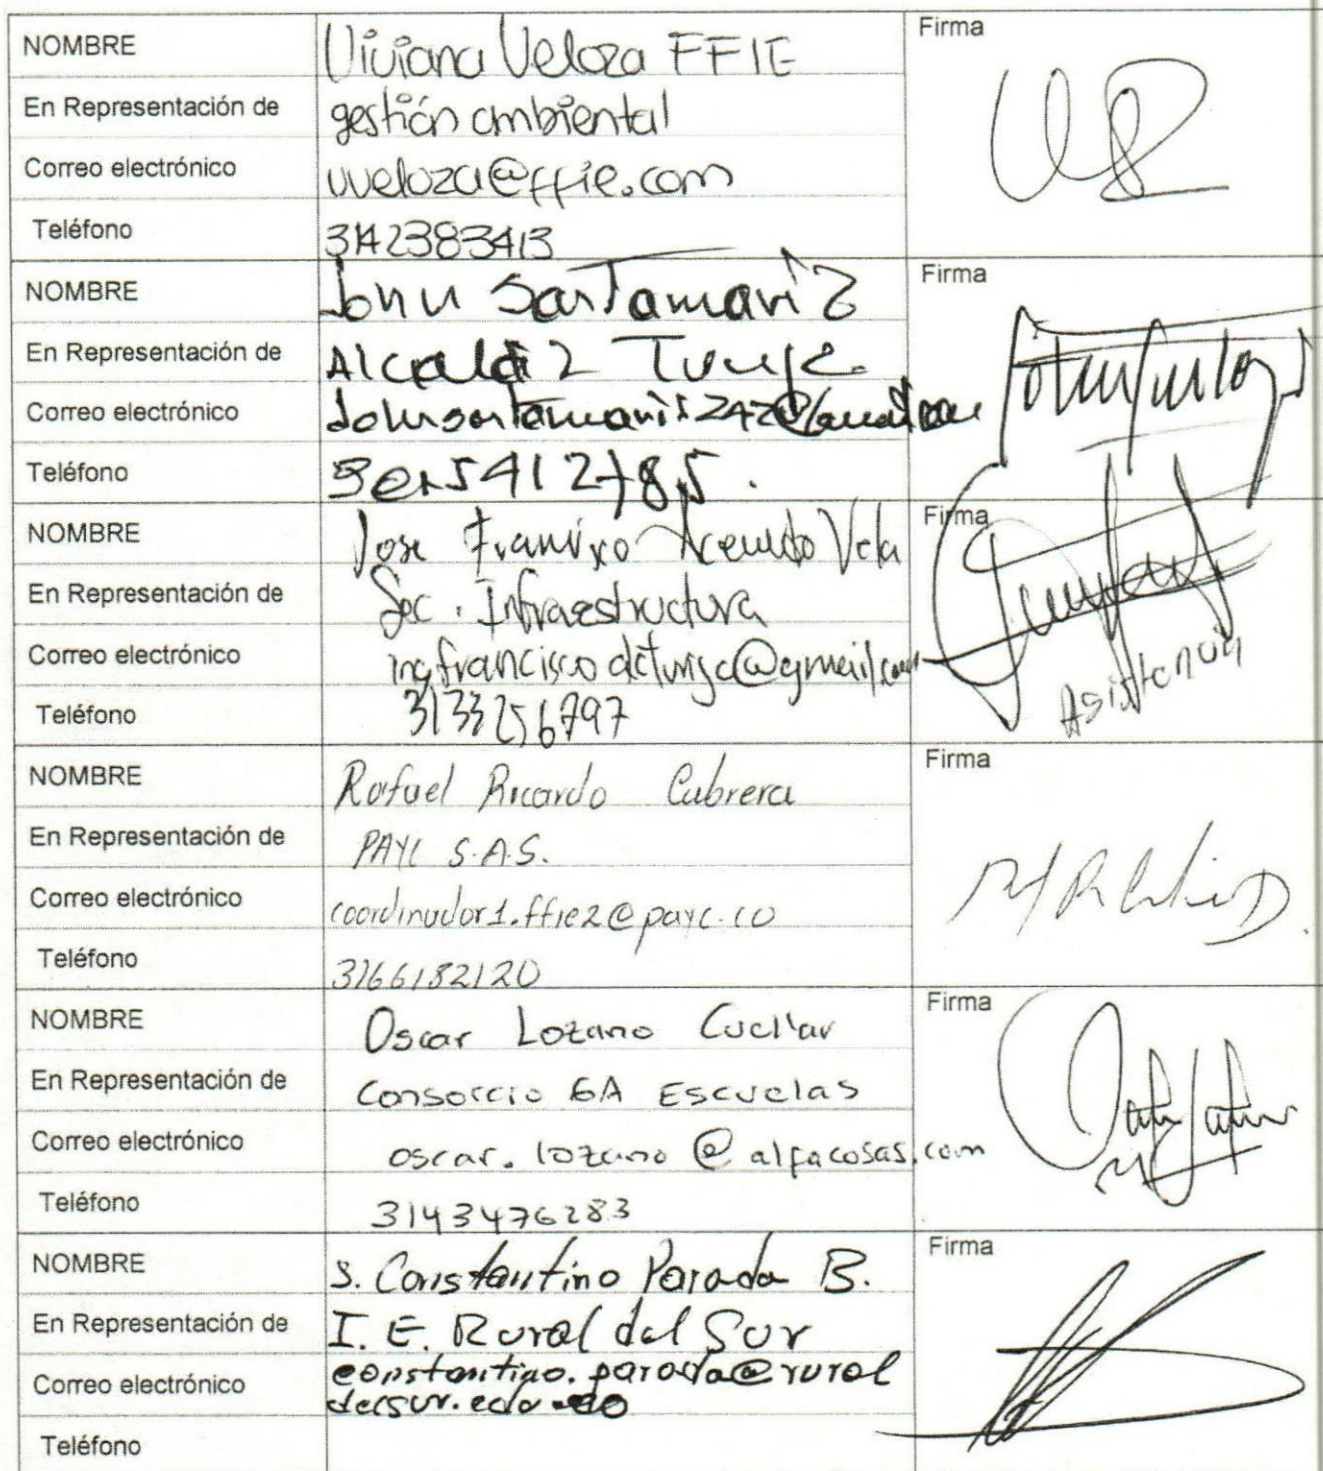 NOMBRE Viviana Veloza FFIE Firma
En Representación de gestión ambiental
Correo electrónico vveloza@ffie.com
Teléfono 3142383413
NOMBRE John Santamaria Firma
En Representación de Alcaldia Tunja
Correo electrónico
Teléfono
NOMBRE Jose Francisco Acevedo Vela Firma
En Representación de Sec. Infraestructura
Correo electrónico
Asistencia
Teléfono 3133256797
NOMBRE Rafael Ricardo Cabrera Firma
En Representación de PAYC S.A.S.
Correo electrónico coordinador1.ffie2@payc.co
Teléfono 3166182120
NOMBRE Oscar Lozano Cuellar Firma
En Representación de Consorcio GA Escuelas
Correo electrónico oscar.lozano@alfacosas.com
Teléfono 3143476283
NOMBRE S. Constantino Parada B. Firma
En Representación de I.E. Rural del Sur
Correo electrónico constantino.parada@rural
delsur.edu.co
Teléfono